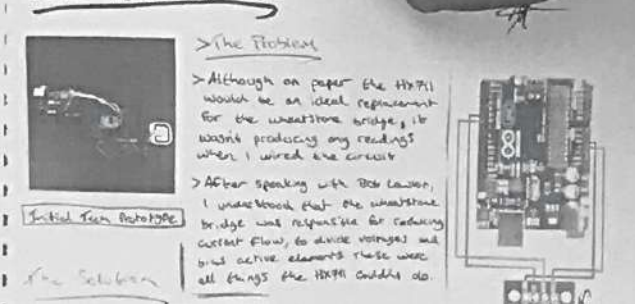 > The Problem
> Although on paper the HX711
would be an ideal replacement
for the wheatstone bridge, it
wasn't producing any readings
when I wired the circuit
> After speaking with Bob Lawson,
I understood that the wheatstone
bridge was responsible for reducing
current flow, to divide voltages and
bias active elements these were
all things the HX711 couldn't do.
Initial Tech Prototype
The Solution